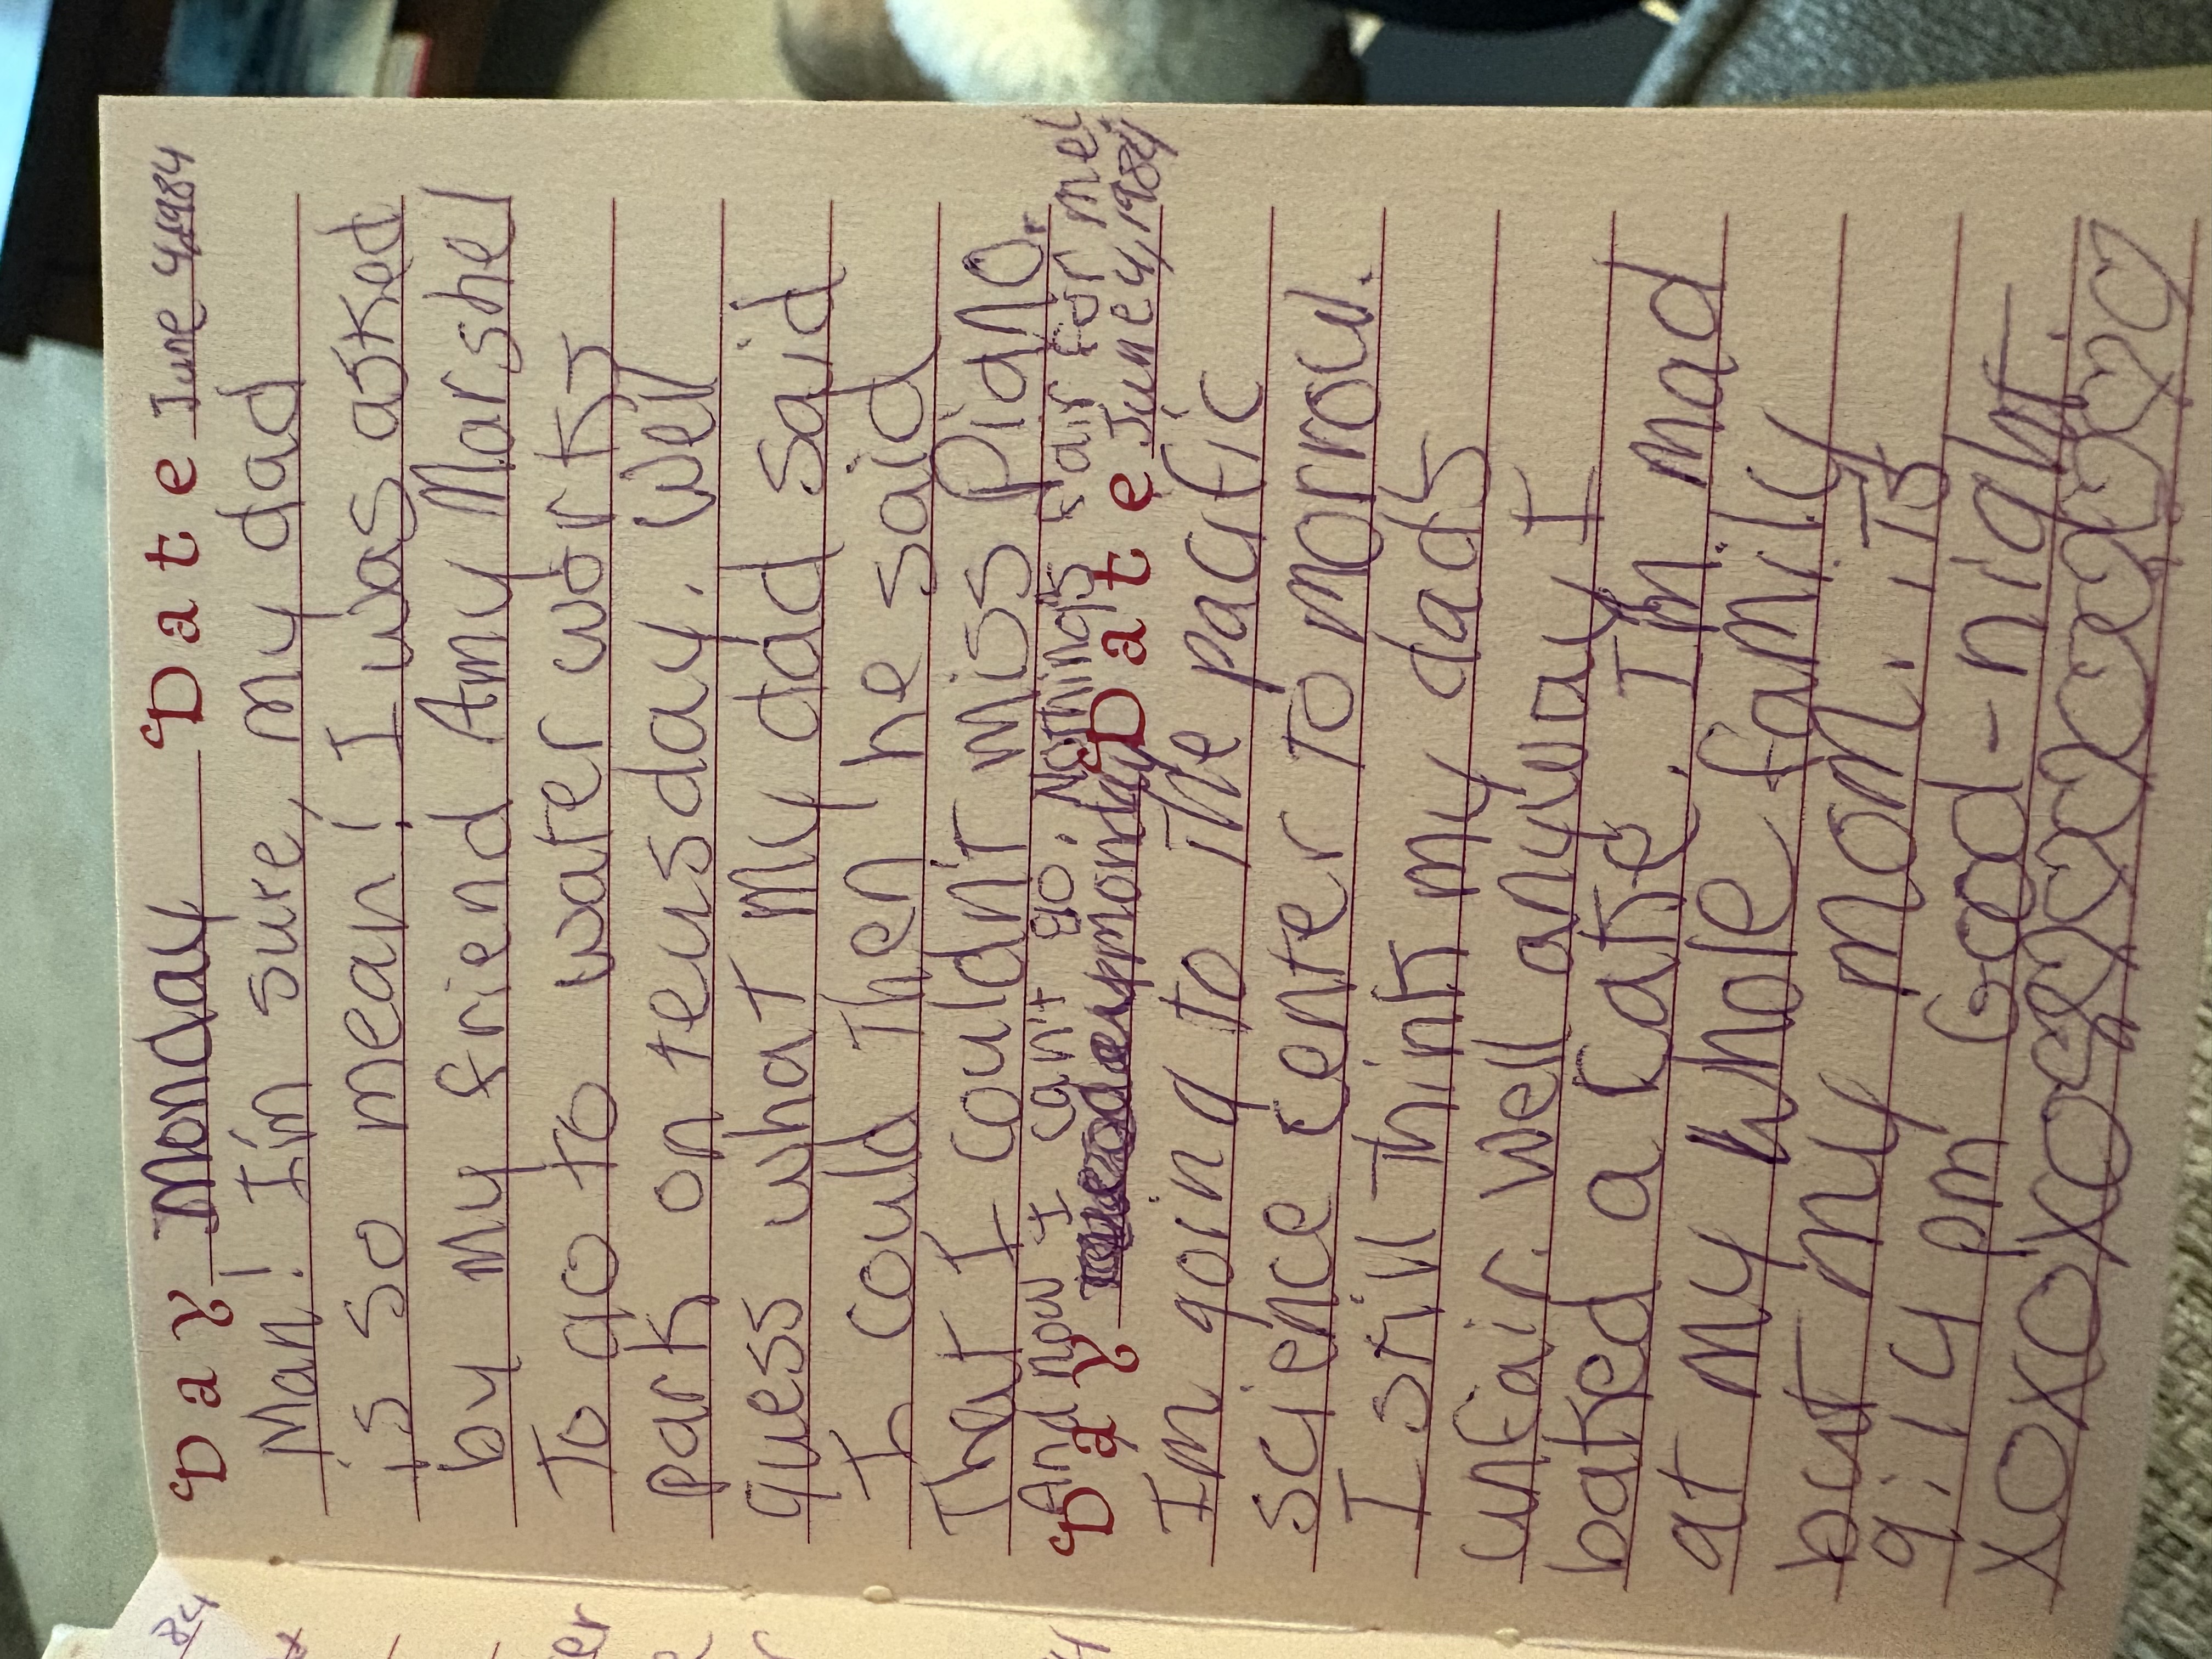 Day Monday Date June 4, 1984
Man! I'm sure, my dad
is so mean! I was asked
by my friend Amy Marshel
To go to water works
park on teusday. Well
guess what my dad said
I could Then he said
That I couldn't miss piano.
And now I can't go! Nothings fair for me!
Day monday Date June 4, 1984
Im going to The pacific
science center To morrow.
I still Think my dads
unfair. well anyway I
baked a cake. I'm mad
at my whole family
but my mom. Its
9:14 pm Good-night.
xoxoxo
84
er